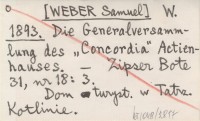 [WEBER Samuel] W.
1893. Die Generalversamm-
lung des „Concordia" Actien-
hauses. — Zipser Bote
31, nr 18: 3.
Dom turyst. w Tatrz.
Kotlinie.